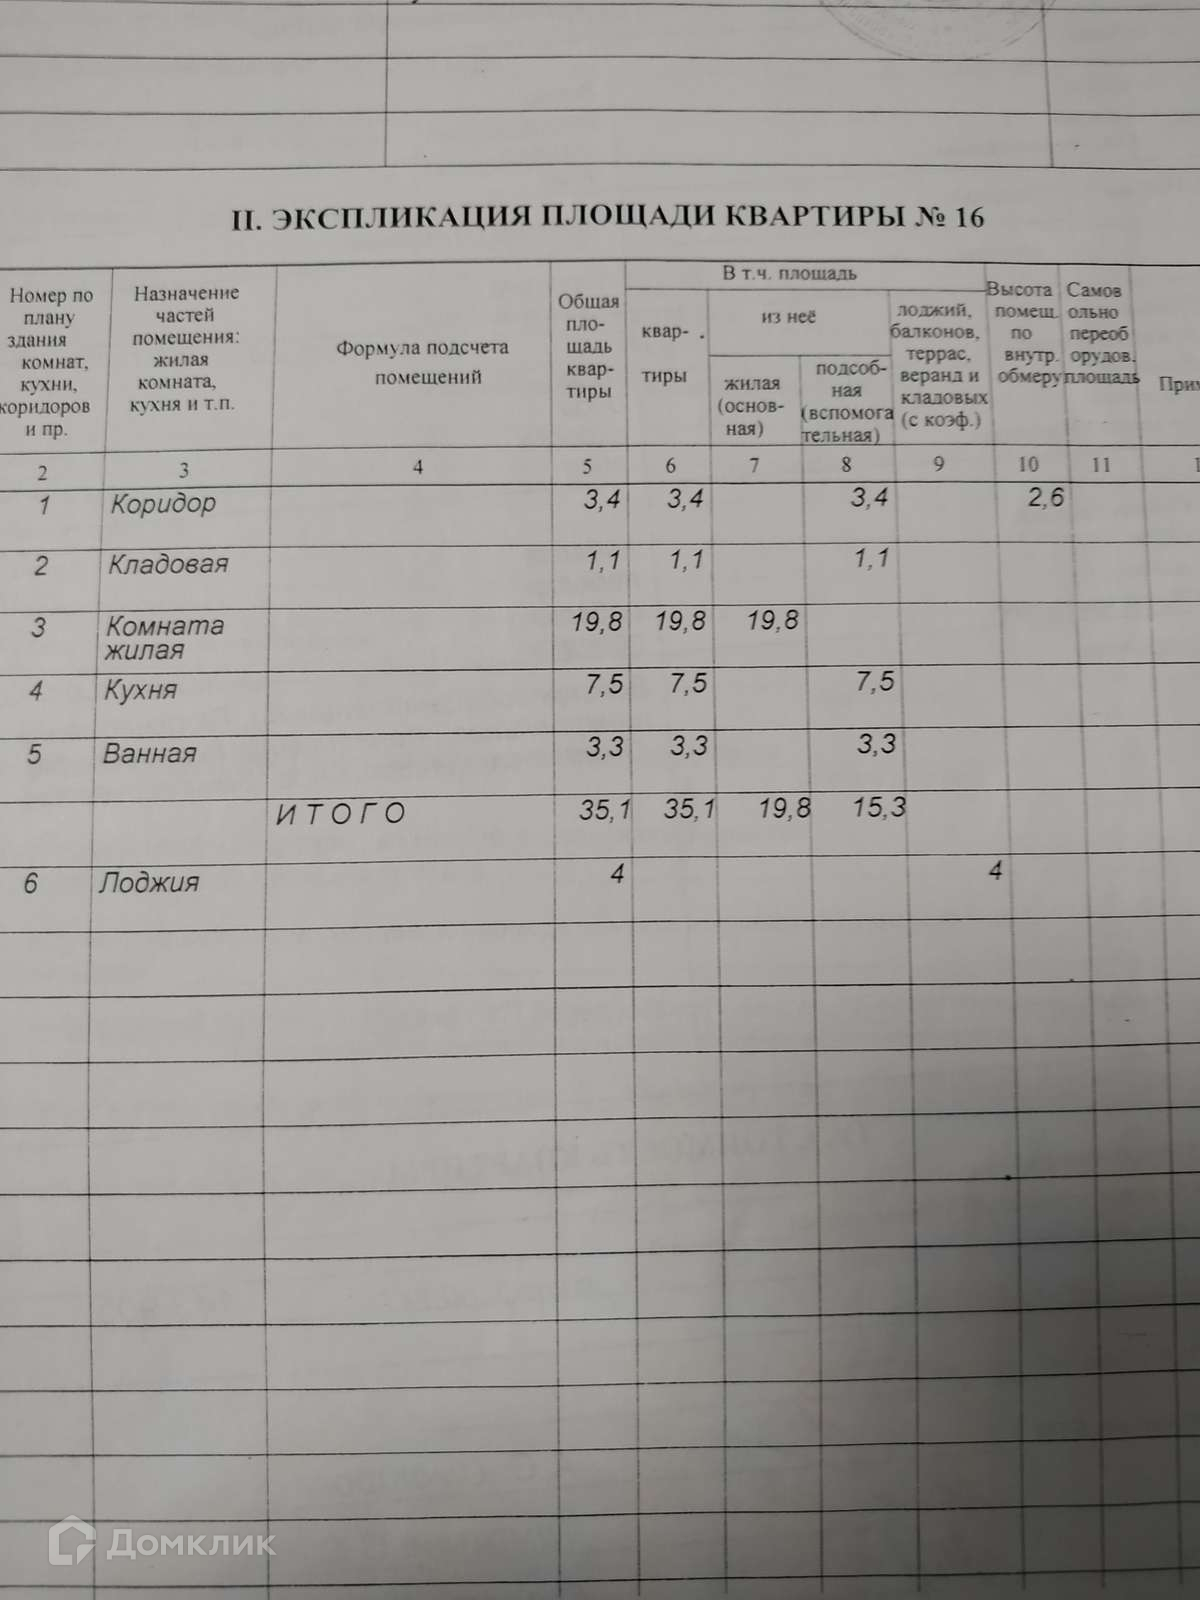 II. ЭКСПЛИКАЦИЯ ПЛОЩАДИ КВАРТИРЫ № 16
Номер по плану здания комнат, кухни, коридоров и пр.
Назначение частей помещения: жилая комната, кухня и т.п.
Формула подсчета помещений
Общая пло- щадь квар- тиры
В т.ч. площадь
квар- тиры
из неё
жилая (основ- ная)
подсоб- ная (вспомога тельная)
лоджий, балконов, террас, веранд и кладовых (с коэф.)
Высота помещ. по внутр. обмеру
Самов ольно переоб орудов. площадь
2 3 4 5 6 7 8 9 10 11
1 Коридор 3,4 3,4 3,4 2,6
2 Кладовая 1,1 1,1 1,1
3 Комната жилая 19,8 19,8 19,8
4 Кухня 7,5 7,5 7,5
5 Ванная 3,3 3,3 3,3
ИТОГО 35,1 35,1 19,8 15,3
6 Лоджия 4 4
Домклик